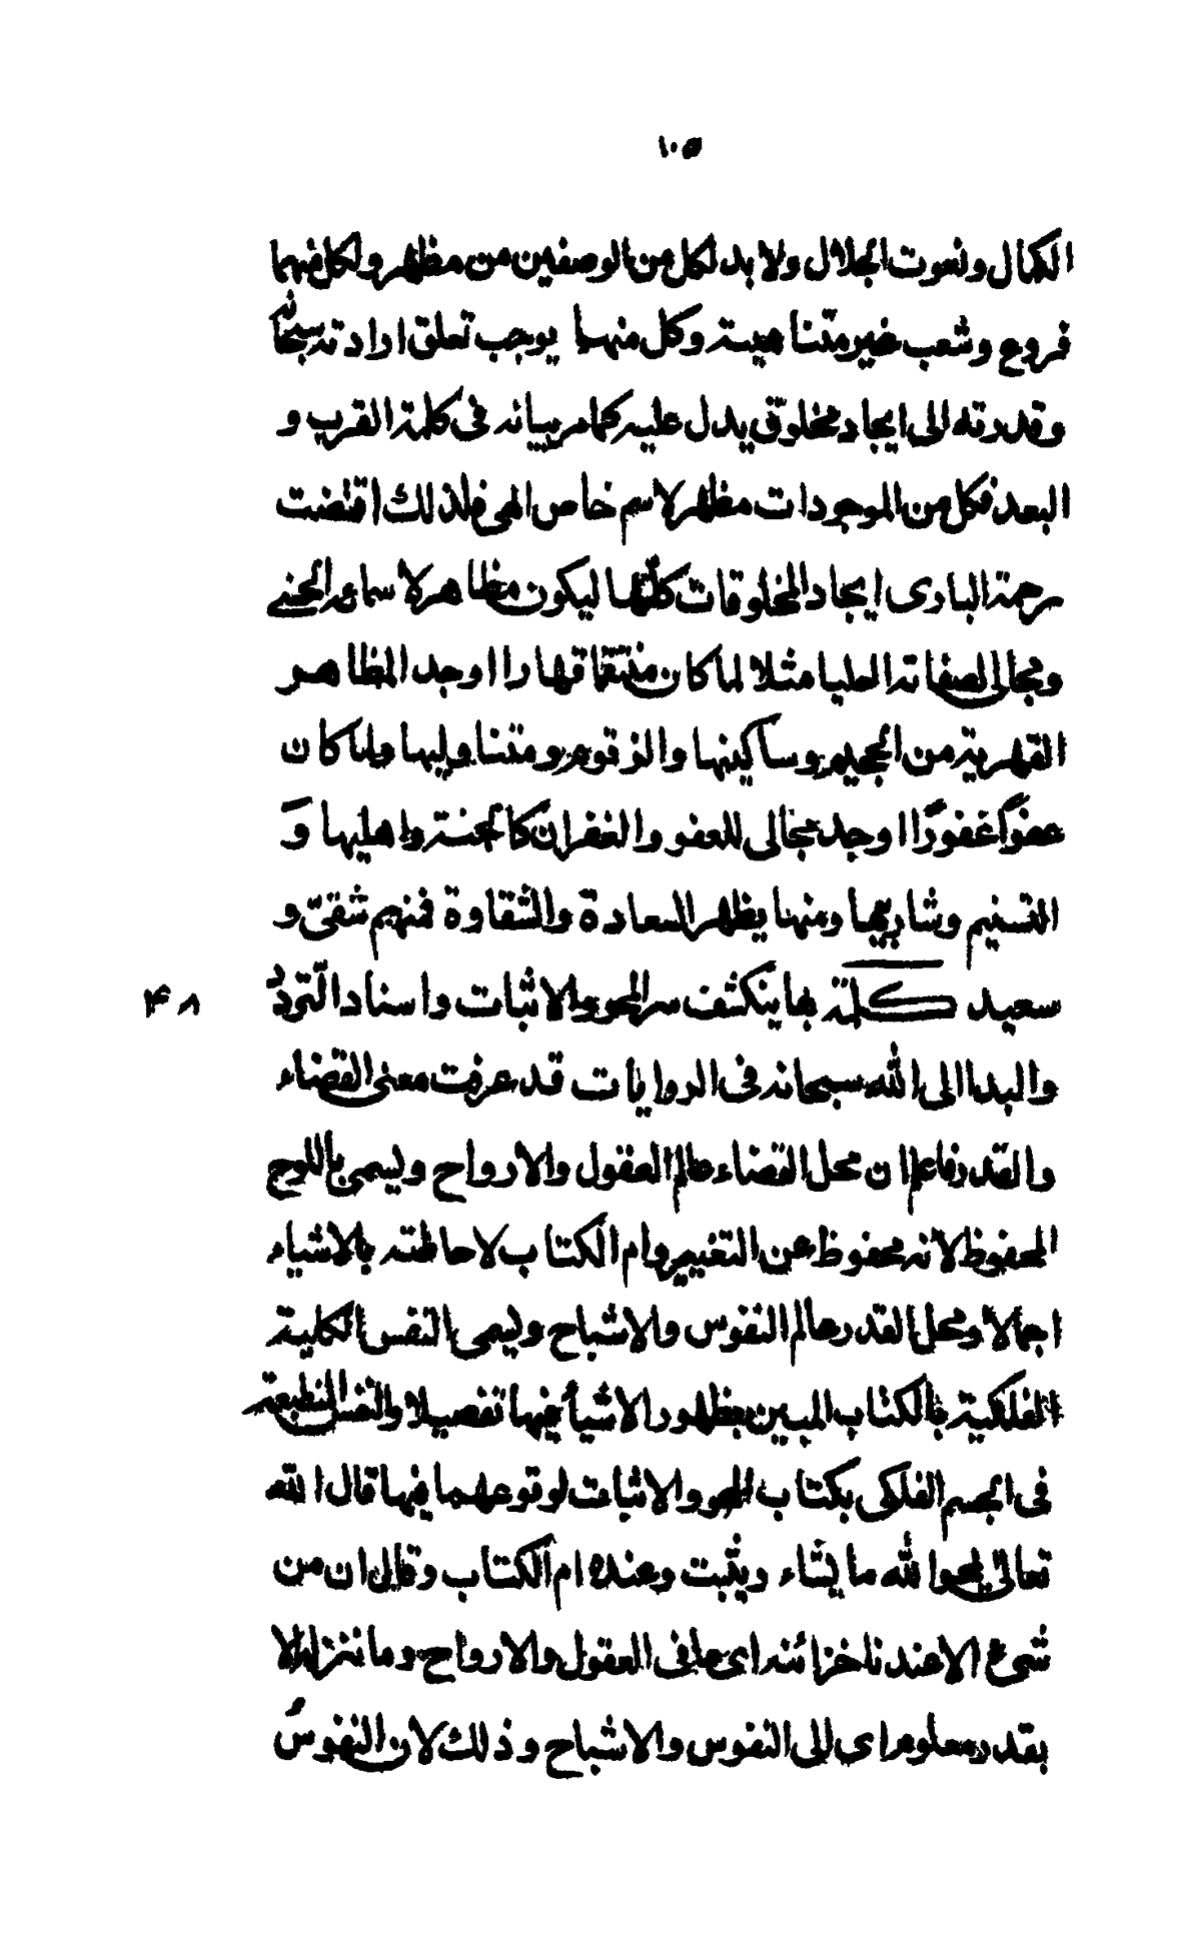 ١٠٥
الكمال ونعوت الجلال ولا بد لكل من الوصفين من مظهر ولكل منهما
فروع وشعب غير متناهيته وكل منهما يوجب تعلق ارادته سبحانه
وقدرته الى ايجاد مخلوق يدل عليه كما مر بيانه فى كلمة القرب و
البعد فكل من الموجودات مظهر لاسم خاص الهى فلذلك اقتضت
رحمة البارى ايجاد المخلوقات كلّها ليكون مظاهر لاسمائه الحسنى
ومجالى لصفاته العليا مثلا لما كان منتقما قهارا اوجد المظاهر
القهرية من الجحيم وساكنيها والزقوم ومتناوليها ولما كان
عفوًّا غفورًا اوجد مجالى للعفو والغفران كالجنة واهليها وَ
التسنيم وشاربيها ومنها يظهر السعادة والشقاوة فمنهم شقىّ و
سعيد كلمة بها ينكشف سر المحو والاثبات واسناد التّردُد
۴۸
والبدا الى الله سبحانه فى الروايات قد عرفت معنى القضاء
والقدر فاعلم ان محل القضاء عالم العقول والارواح ويسمى باللوح
المحفوظ لانه محفوظ عن التغيير وام الكتاب لاحاطته بالاشياء
اجمالا ومحل القدر عالم النفوس والاشباح ويسمى النفس الكلية
الفلكية بالكتاب المبين بظهور الاشيأ فيها تفصيلا والنفس المنطبعة
فى الجسم الفلكى بكتاب المحو والاثبات لوقوعهما فيها قال الله
تعالى يمحوا لله ما يشاء ويثبت وعنده ام الكتاب وقال ان من
شىء الا عندنا خزائنه اى ما فى العقول والارواح وما ننزله الا
بقدر معلوم اى الى النفوس والاشباح وذلك لان النفوس